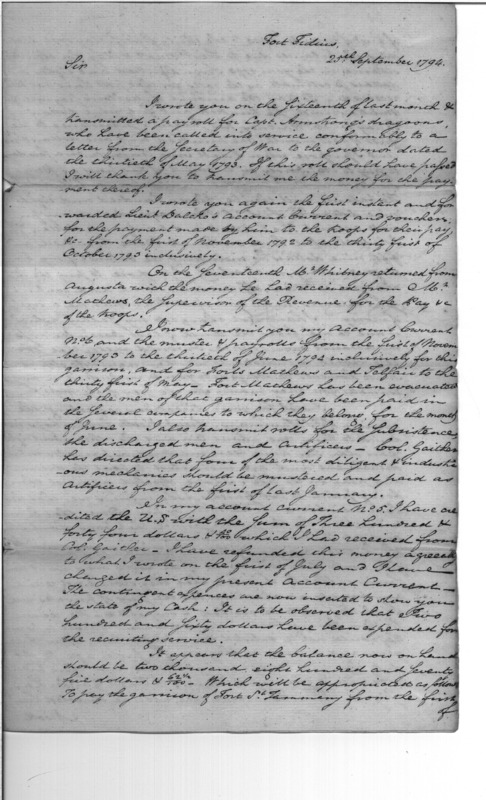 Fort Fidius,
25th September 1794.
Sir
I wrote you on the Sixteenth of last month &
transmitted a payroll for Capt. Armstrong's dragoons,
who have been called into service conformably to a
letter from the Secretary of War to the governor dated
the thirtieth of May 1793. If this roll should have passed
I will thank you to transmit me the money for the pay-
ment thereof.
I wrote you again the first instant and for
warded Lieut Dalcho's Account Current and vouchers
for the payment made by him to the troops for their pay
&c. from the first of November 1792 to the thirty first of
October 1793 inclusively.
On the Seventeenth Mr. Whitney returned from
Augusta with the money he had received from Mr.
Mathews, the Supervisor of the Revenue for the Pay &c
of the troops.
I now transmit you my Account Current
No. 6 and the muster & payrolls from the first of Novem
ber 1793 to the thirtieth of June 1794 inclusively for this
garrison, and for Forts Mathews and Telfair to the
thirty first of May - Fort Mathews has been evacuated
and the men of that garrison have been paid in
the several companies to which they belong, for the month
of June. I also transmit rolls for the Subsistence
the discharged men and Artificers - Col. Gaither
has directed that some of the most diligent & industri
-ous mechanics should be mustered and paid as
Artificers from the first of last January.
In my account current No. 5. I have cre
dited the U,S with the sum of Three hundred &
forty four dollars & which I had received from
Col. Gaither - I have refunded this money agreeably
to what I wrote on the first of July and I have
charged it in my present Account Current -
The contingent expences are now inserted to shew you
the state of my Cash: It is to be observed that Two
hundred and Sixty dollars have been expended for
the recruiting Service.
It appears that the balance now on hand
should be two thousand eight hundred and seventy
five dollars & 62/100 - Which will be appropriated as follows
To pay the garrison of Fort St. Tammeny from the first
of